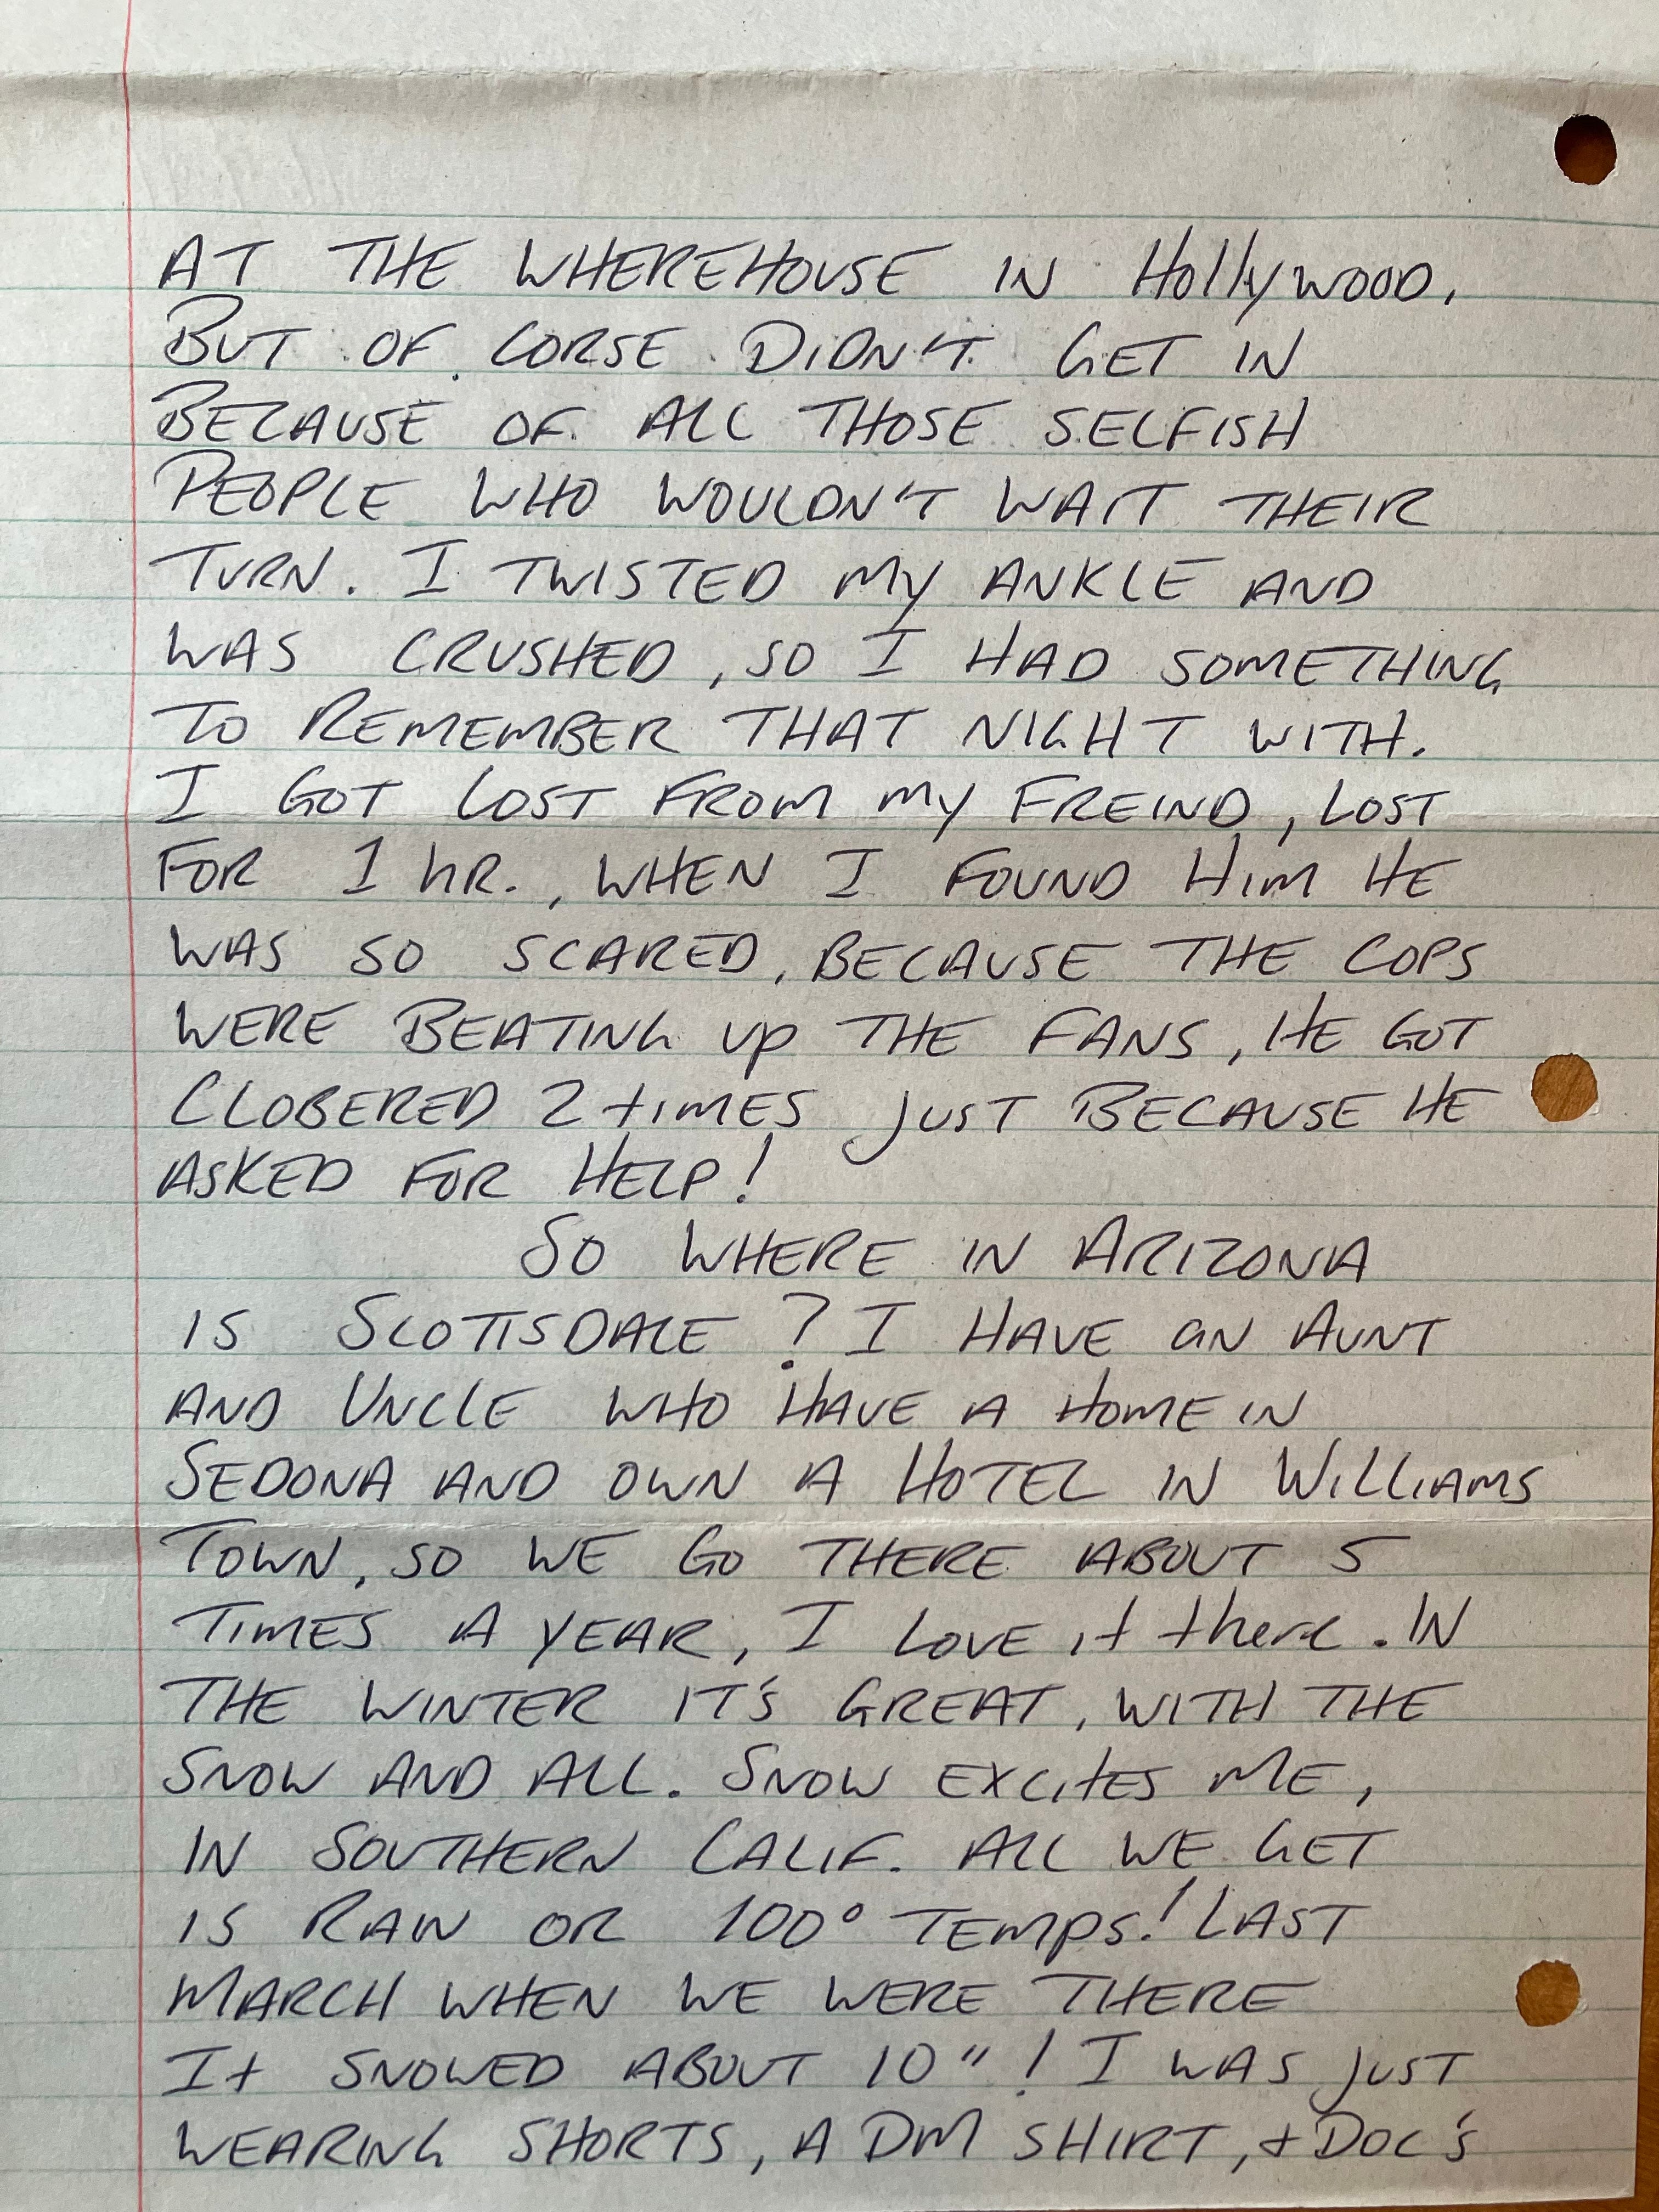 AT THE WHEREHOUSE IN HOllyWOOD.
BUT OF CORSE DIDN'T GET IN
BECAUSE OF ALL THOSE SELFISH
PEOPLE WHO WOULDN'T WAIT THEIR
TURN. I TWISTED MY ANKLE AND
WAS CRUSHED, SO I HAD SOMETHING
TO REMEMBER THAT NIGHT WITH.
I GOT LOST FROM MY FREIND, LOST
FOR 1 hR., WHEN I FOUND HIM HE
WAS SO SCARED, BECAUSE THE COPS
WERE BEATING UP THE FANS, HE GOT
CLOBERED 2 tIMES JUST BECAUSE HE
ASKED FOR HELP!
SO WHERE IN ARIZONA
IS SCOTTSDALE? I HAVE AN AUNT
AND UNCLE WHO HAVE A HOME IN
SEDONA AND OWN A HOTEL IN WILLIAMS
TOWN, SO WE GO THERE ABOUT 5
TIMES A YEAR, I LOVE it there. IN
THE WINTER IT'S GREAT, WITH THE
SNOW AND ALL. SNOW EXCItES ME,
IN SOUTHERN CALIF. ALL WE GET
IS RAIN OR 100° TEMPS! LAST
MARCH WHEN WE WERE THERE
It SNOWED ABOUT 10"! I WAS JUST
WEARING SHORTS, A DM SHIRT, + DOC'S